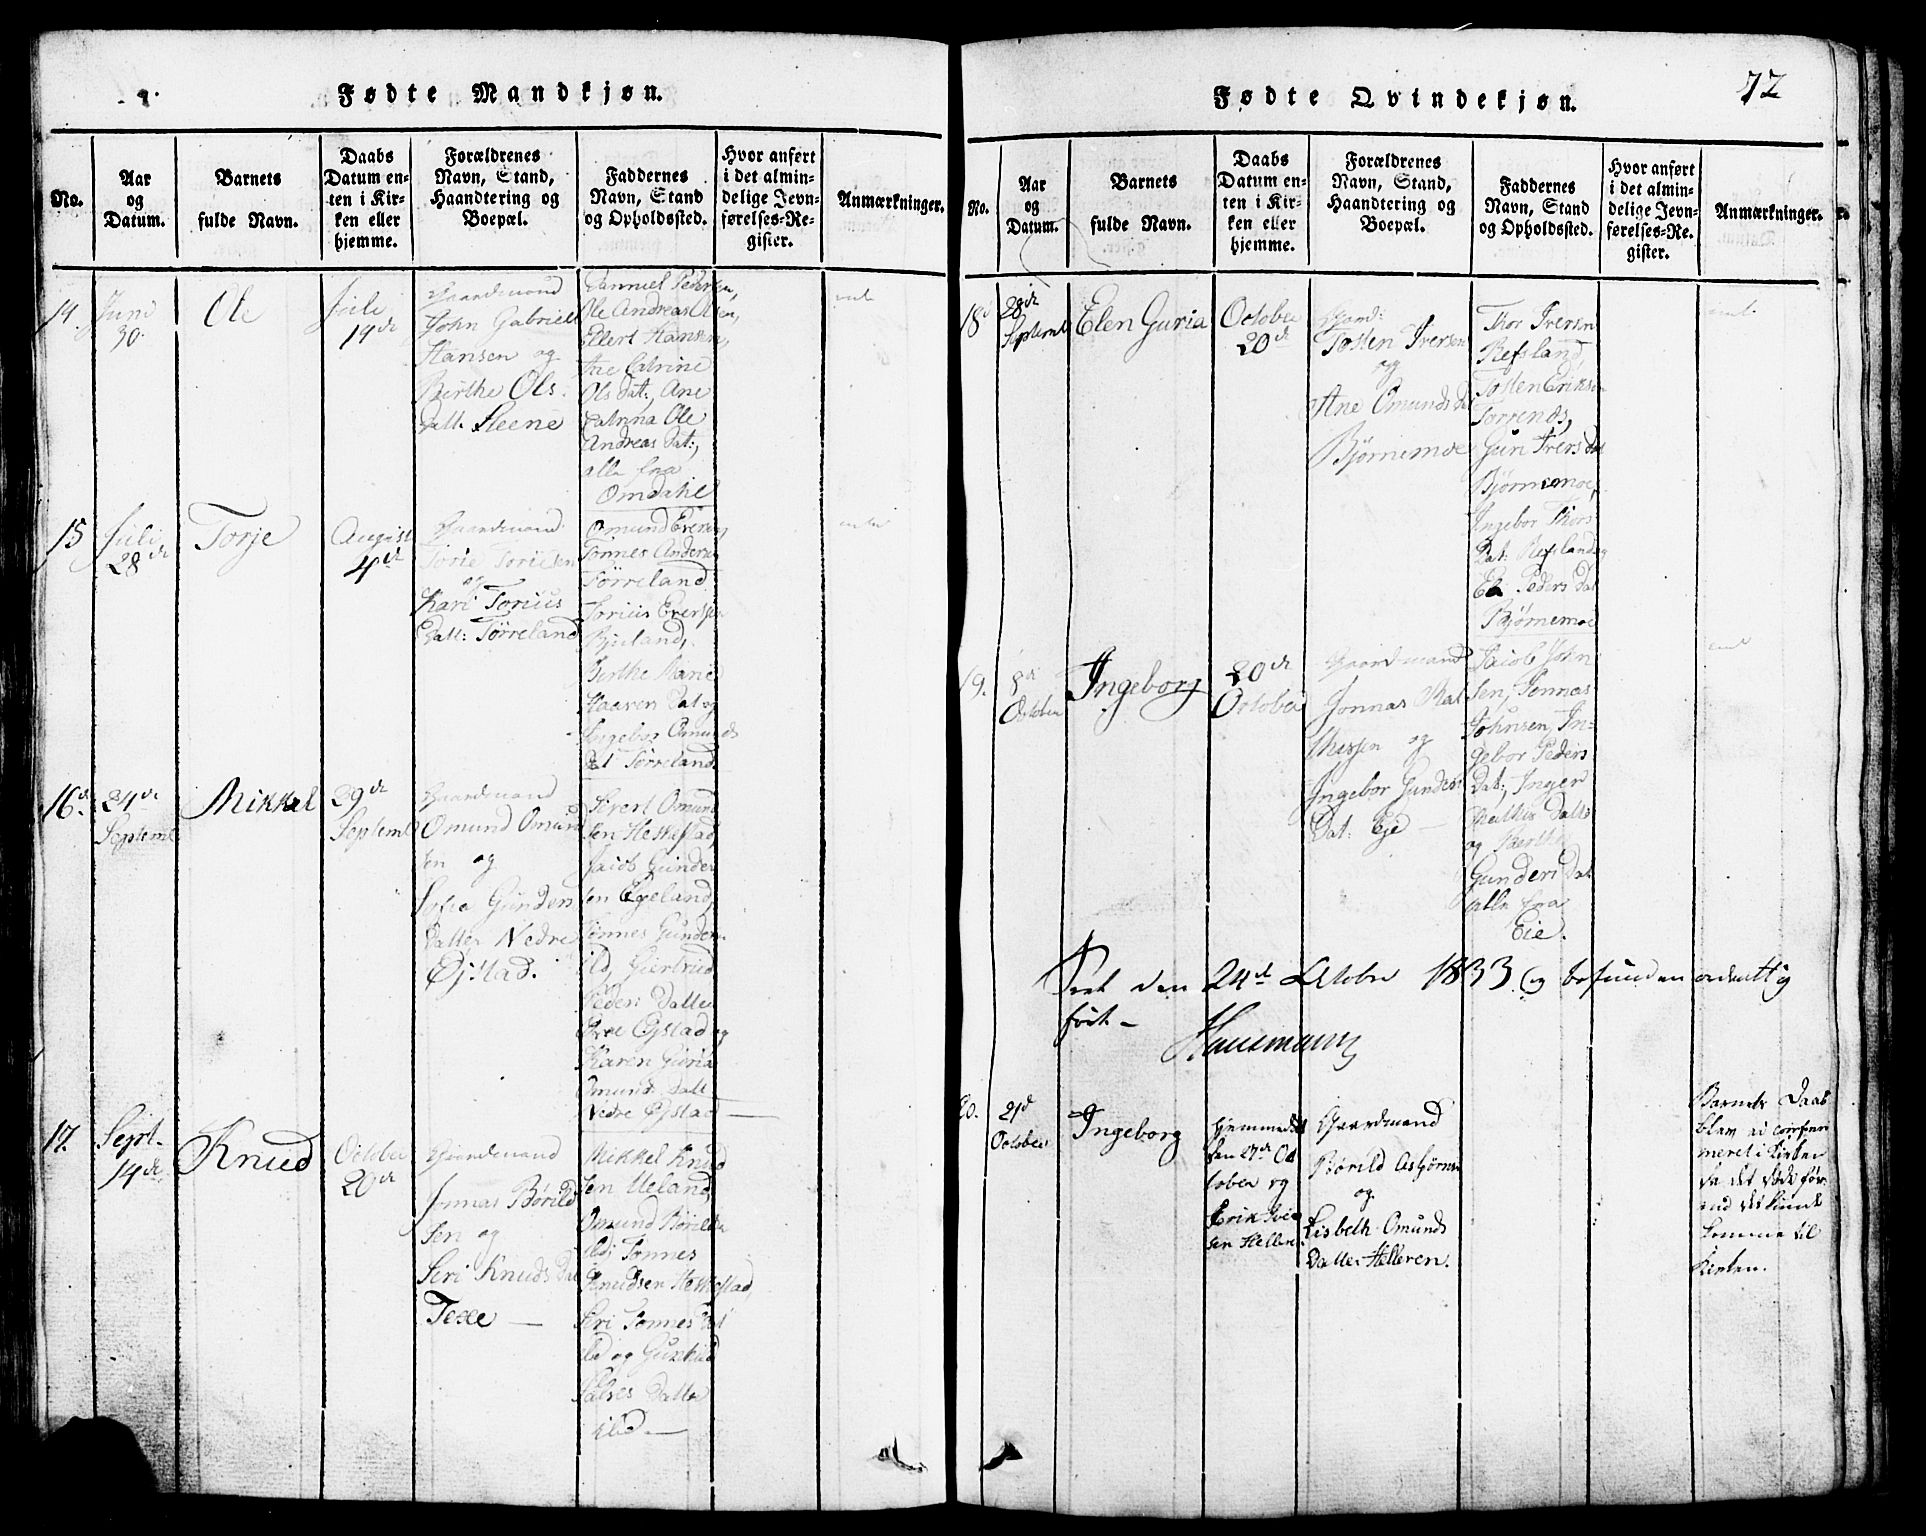 Fødte Mandkjøn.
No.
Aar
og
Datum.
Barnets
fulde Navn.
Daabs
Datum en-
ten i Kir-
ken eller
hjemme.
Forældrenes
Navn, Stand,
Haandtering og
Boepæl.
Faddernes
Navn, Stand
og Opholdssted.
Hvor anført
i det almin-
delige Jevn-
førelses-Re-
gister.
Anmærkninger.
14.
Juni
30.
Ole
Juli
19de
Gaardmand
John Gabriel
Hansen og
Berthe Ols
Datt. Steene
Samuel Pedersen,
Ole Andreas Olsen,
Ellert Hansen,
Ane Catrine
Olsdat:, Ane
Catrina Ole
Andreas Dat:,
alle fra
Omdahl
15
Juli
28de
Torje
August
4de
Gaardmand
Torie Toriesen
og
Kari Torius
Datt: Tørreland
Omund Eversen,
Tønnes Anders
Tørreland
Torius Eversen
Bjuland,
Berthe Marie
Haaren Dat og
Ingebor Omunds
Dat Tørreland
16de
24de
Septembr
Mikkel
29de
Septembr
Gaardmand
Omund Omund
sen og
Sofia Gunders
Datter Nedre
Øjstad.
Sivert Omund
sen Heskestad,
Jacob Gunder
sen Egeland,
Tønnes Gunders
ibd, Giertrud
Peders Datter
Øvre Øjstad og
Karen Guria
Omunds Datt
Nedre Øjstad
17.
Sept.
14de
Knud
October
20de
Gaardmand
Jonnas Børild
sen og
Seri Knuds Dat
Texe
Mikkel Knud
sen Ueland,
Omund Børilds
ibd; Tønnes
Knudsen Heskestad,
Seri Tønnes Dat
ibd og Gurkid
Salves Datte
ibid
Fødte Qvindekjøn.
72
No.
Aar
og
Datum.
Barnets
fulde Navn.
Daabs
Datum en-
ten i Kir-
ken eller
hjemme.
Forældrenes
Navn, Stand,
Haandtering og
Boepæl.
Faddernes
Navn, Stand
og Opholdssted.
Hvor anført
i det almin-
delige Jevn-
førelses-Re-
gister.
Anmærkninger.
18
28de
Septembr
Elen Guria
October
20de
Gaard:
Tosten Iversen
og
Ane Omunds dat
Bjørnemoe
Thor Iversen
Refsland,
Tosten Eriksen
Torrends,
Guri Ivers dat
Bjørnemoe,
Ingebor Thors
Dat: Refsland og
Ea Peders Dat
Bjørnemoe
19.
8de
October
Ingeborg
20de
October
Gaardmand
Jonnas Mat
thissen og
Ingebor Gunders
Dat: Eje
Jacob John
sen, Tønnas
Johnsen, In-
gebor Peders
Dat:, Inger
Mathis Datt
og Berthe
Gunders Dat
alle fra
Eie.
Seet den 24de Octobr 1833 og befunden ordentlig
ført.
Hausmann
20.
21d
October
Ingeborg
Hjemmedøbt
den 27de Oc
tober og
Erik Iver
sen Helleren
Gaardmand
Børild Asbjørnsen
og
Lisbeth Omunds
Datter Helleren.
Barnets Daab
blev ei confir
meret i Kirken
da det døde før
end det kunde
komme til
Kirken.